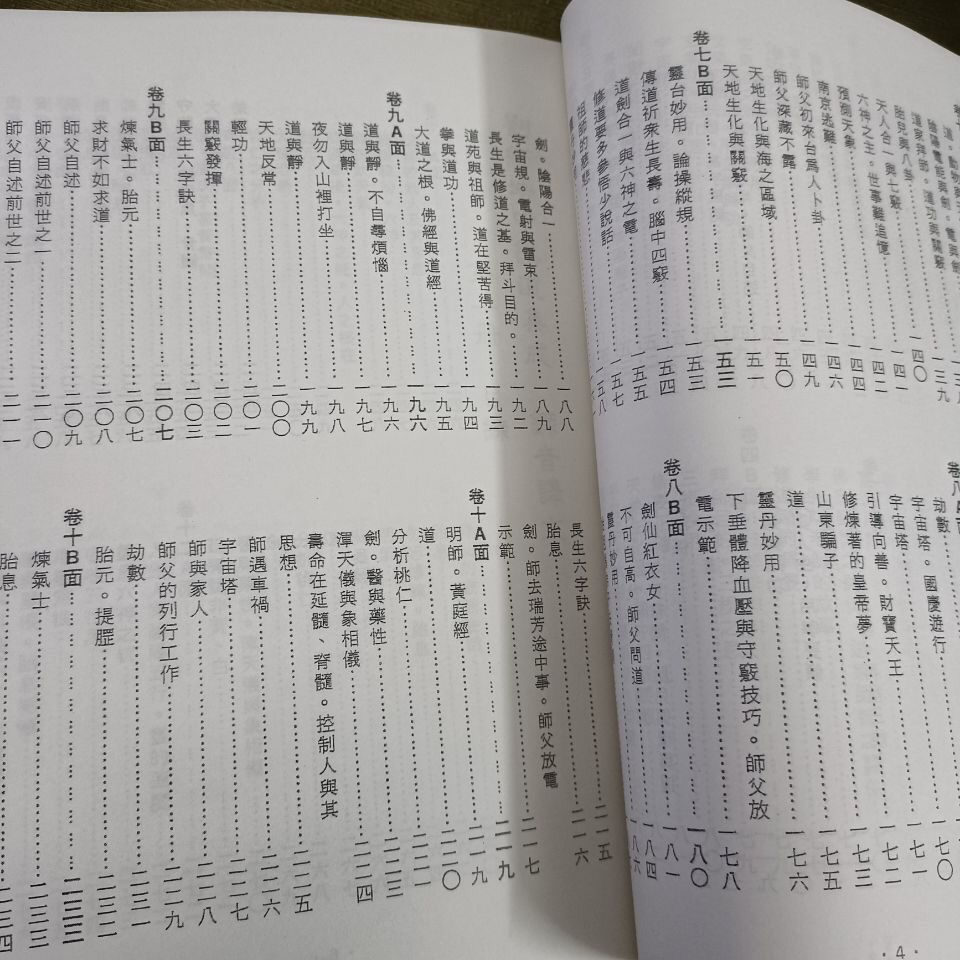 道家拜師。道功與關竅……一三八
胎兒與八卦……一三九
天人合一與七竅……一四〇
六神之主。世事難追憶……一四一
預測天象……一四二
南京逃難……一四四
師父初來台為人卜卦……一四六
師父深藏不露……一四九
天地生化與海之區域……一五〇
天地生化與關竅……一五一
卷七B面……一五三
靈台妙用。論操縱規……一五三
傳道祈衆生長壽。腦中四竅……一五四
道劍合一與六神之電……一五五
修道要多參悟少說話……一五七
祖師的慈悲……一五八
卷八A
劫數
宇宙塔。國慶遊行
宇宙塔……一七〇
引導向善。財寶天王……一七一
修煉著的皇帝夢……一七二
山東騙子……一七三
道……一七五
靈丹妙用……一七六
下垂體降血壓與守竅技巧。師父放
電示範……一七八
卷八B面……一八〇
劍仙紅衣女……一八一
不可自高。師父問道……一八四
靈丹妙用……一八六
·4·
劍。陰陽合一……一八八
宇宙規。電射與雷束……一八九
長生是修道之基。拜斗目的。……一九二
道苑與祖師。道在堅苦得……一九三
拳與道功……一九四
大道之根。佛經與道經……一九五
卷九A面……一九六
道與靜。不自尋煩惱……一九六
道與靜……一九七
夜勿入山裡打坐……一九八
道與靜……一九九
天地反常……二〇〇
輕功……二〇一
關竅發揮……二〇二
長生六字訣……二〇三
卷九B面……二〇七
煉氣士。胎元……二〇七
求財不如求道……二〇八
師父自述……二〇九
師父自述前世之一……二一〇
師父自述前世之二……二一一
長生六字訣……二一五
胎息……二一六
劍。師去瑞芳途中事。師父放電
示範……二一七
卷十A面……二一九
明師。黃庭經……二一九
道……二二〇
分析桃仁……二二一
劍。醫與藥性……二二三
渾天儀與象相儀……二二四
壽命在延髓、脊髓。控制人與其
思想……二二五
師遇車禍……二二六
宇宙塔……二二七
師與家人……二二八
師父的列行工作……二二九
劫數……二三一
胎元。提腄……二三二
卷十B面……二三三
煉氣士……二三三
胎息……二三四